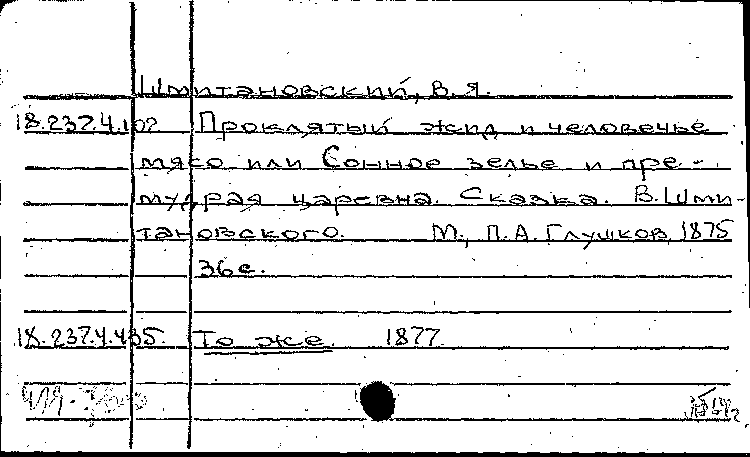 Шмитановский, В.Я.
18.237.4.102 Проклятый жид и человечье
мясо или Сонное зелье и пре-
мудрая царевна. Сказка. В. Шми-
тановского. М., П.А. Глушков, 1875
36 с.
18.237.4.435. То же. 1877.